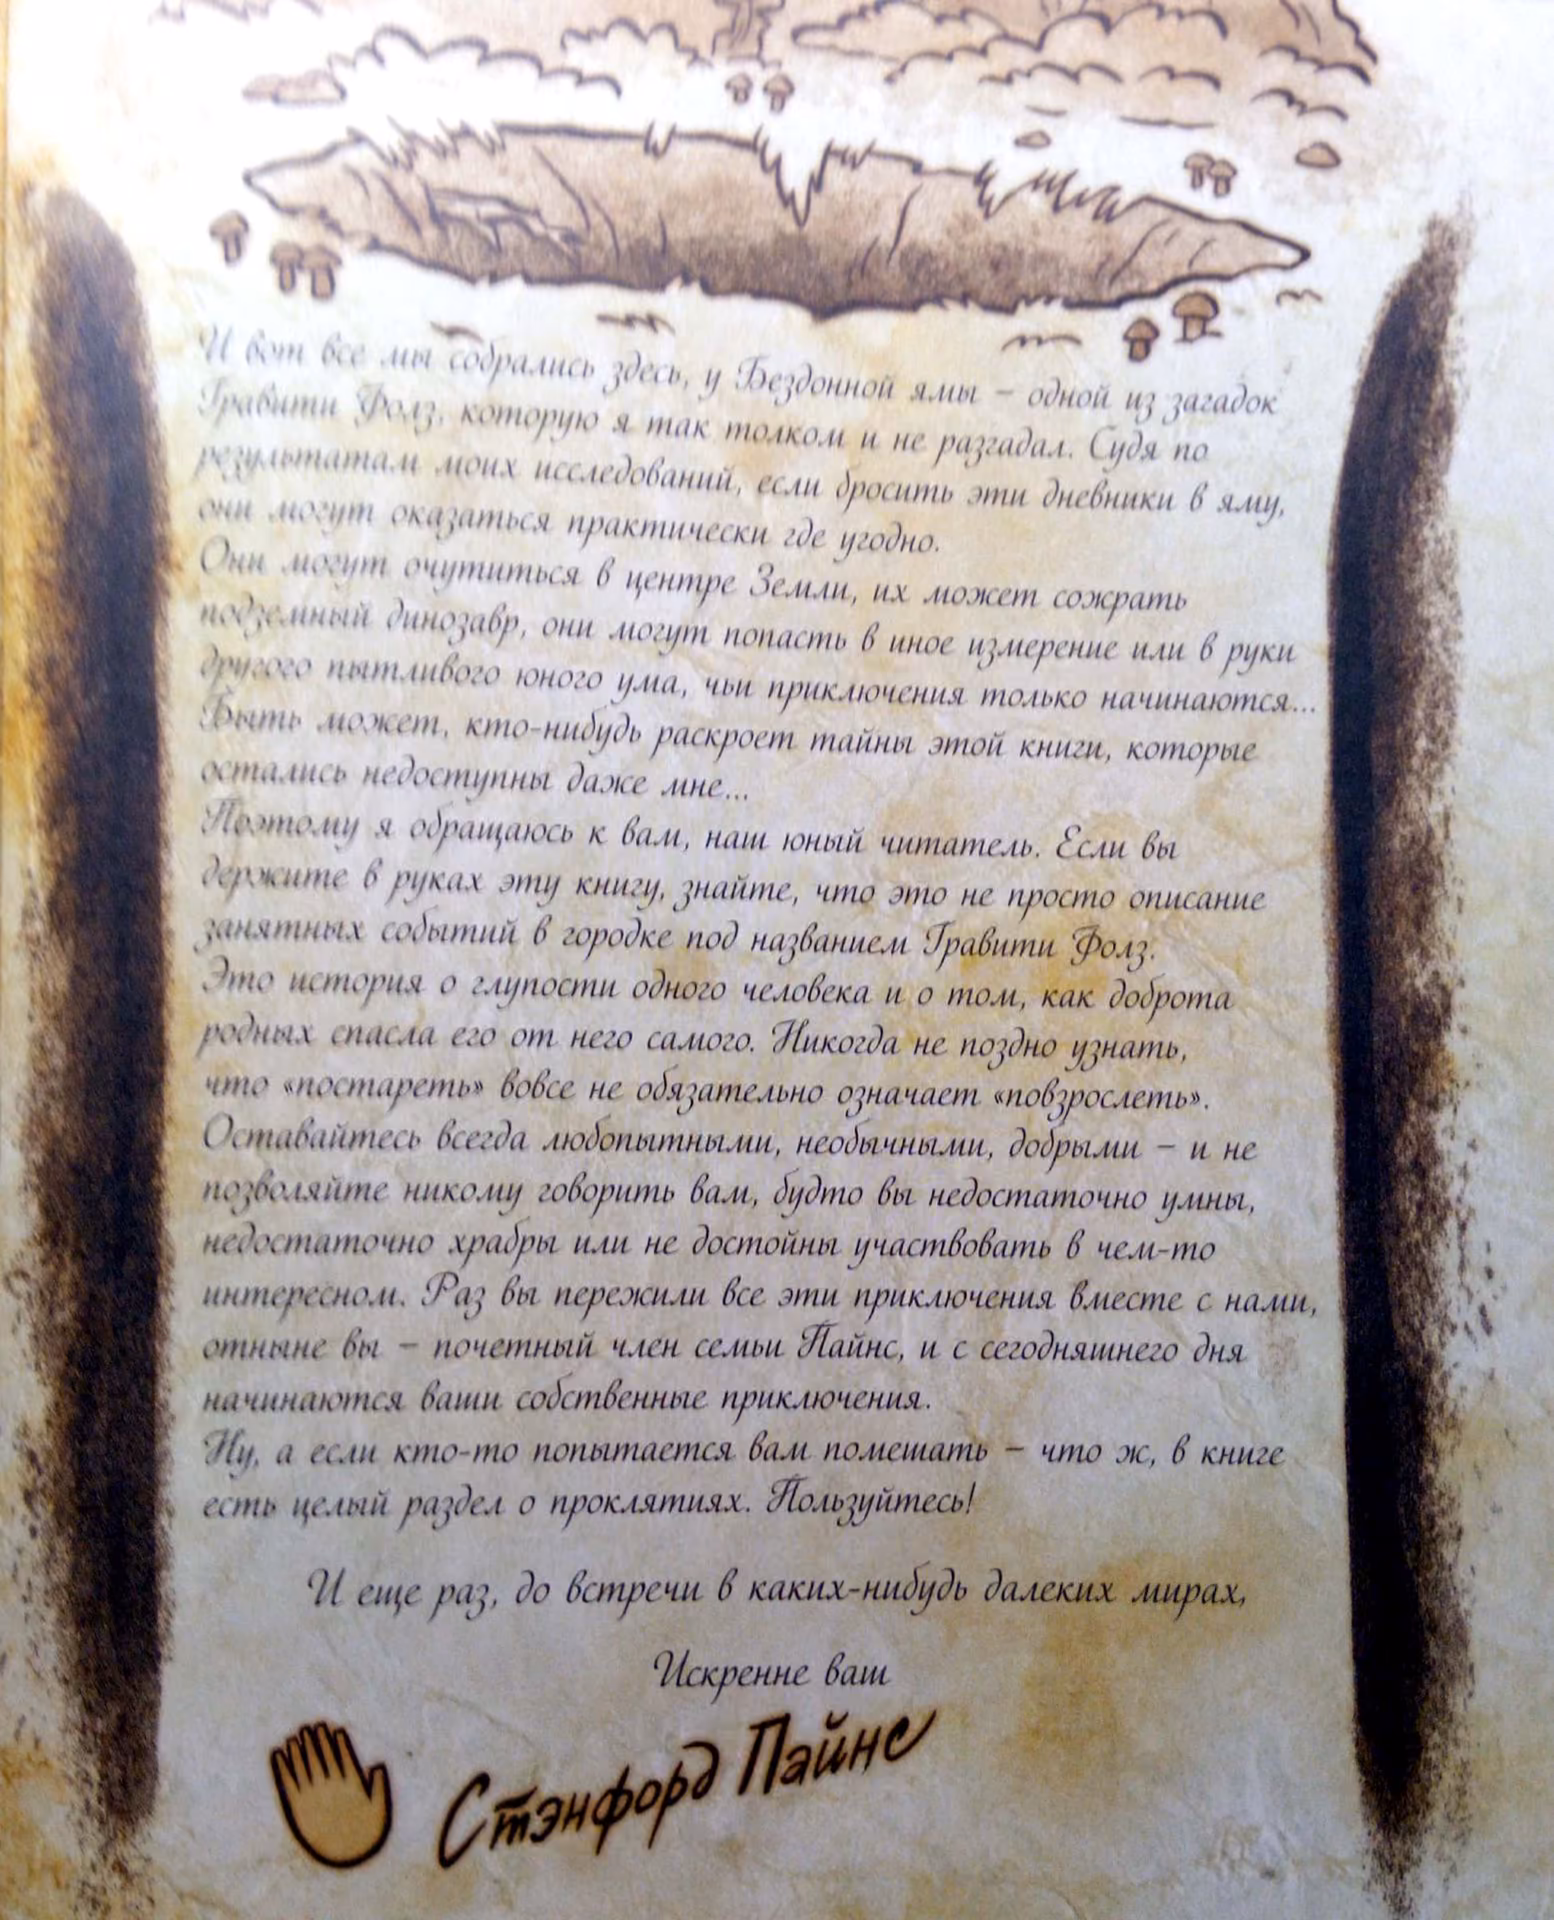 И вот все мы собрались здесь, у Бездонной ямы – одной из загадок
Гравити Фолз, которую я так толком и не разгадал. Судя по
результатам моих исследований, если бросить эти дневники в яму,
они могут оказаться практически где угодно.
Они могут очутиться в центре Земли, их может сожрать
подземный динозавр, они могут попасть в иное измерение или в руки
другого пытливого юного ума, чьи приключения только начинаются...
Быть может, кто-нибудь раскроет тайны этой книги, которые
остались недоступны даже мне...
Поэтому я обращаюсь к вам, наш юный читатель. Если вы
держите в руках эту книгу, знайте, что это не просто описание
занятных событий в городке под названием Гравити Фолз.
Это история о глупости одного человека и о том, как доброта
родных спасла его от него самого. Никогда не поздно узнать,
что «постареть» вовсе не обязательно означает «повзрослеть».
Оставайтесь всегда любопытными, необычными, добрыми – и не
позволяйте никому говорить вам, будто вы недостаточно умны,
недостаточно храбры или не достойны участвовать в чем-то
интересном. Раз вы пережили все эти приключения вместе с нами,
отныне вы – почетный член семьи Пайнс, и с сегодняшнего дня
начинаются ваши собственные приключения.
Ну, а если кто-то попытается вам помешать – что ж, в книге
есть целый раздел о проклятиях. Пользуйтесь!
И еще раз, до встречи в каких-нибудь далеких мирах,
Искренне ваш
Стэнфорд Пайнс